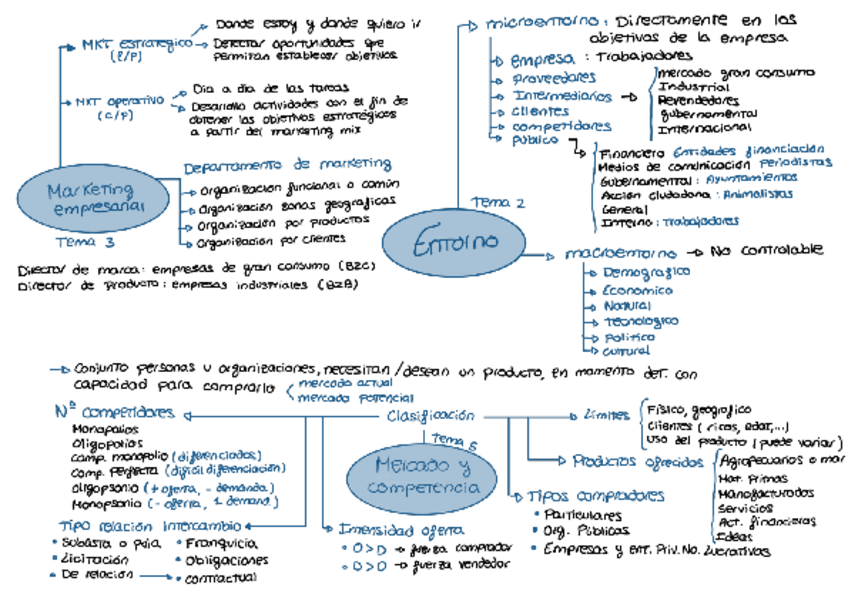 Donde estoy y donde quiero ir
MKT estratégico
(L/P)
Detectar oportunidades que
permitan establecer objetivos
MKT operativo
(C/P)
Dia a dia de las tareas
Desarrollo actividades con el fin de
obtener los objetivos estratégicos
a partir del marketing mix
Marketing
empresarial
Tema 3
Departamento de marketing
Organización funcional o común
Organización zonas geográficas
Organización por productos
Organización por clientes
Director de marca: empresas de gran consumo (B2C)
Director de Producto: empresas industriales (B2B)
Tema 2
Entorno
microentorno: Directamente en los
objetivos de la empresa
empresa: Trabajadores
proveedores
Intermediarios
clientes
competidores
público
mercado gran consumo
Industrial
Revendedores
gubernamental
Internacional
Financiero Entidades financiación
Medios de comunicación Periodistas
Gubernamental: Ayuntamientos
Acción ciudadana: Animalistas
General
Interno: trabajadores
macroentorno → No controlable
Demográfico
Económico
Natural
tecnológico
político
cultural
Conjunto personas u organizaciones, necesitan/desean un producto, en momento det. con
capacidad para comprarlo
mercado actual
mercado potencial
Clasificación
Tema 5
Mercado y
competencia
Nº competidores
Monopolios
Oligopolios
Comp. monopolio (diferenciados)
Comp. perfecta (difícil diferenciación)
Oligopsonio (+ oferta, - demanda)
Monopsonio (- oferta, 1 demand.)
Tipo relación intercambio
• Subasta o puja
• Licitación
• De relación
• Franquicia
• Obligaciones
• contractual
Intensidad oferta
• O>D → fuerza comprador
• O>D → fuerza vendedor
Límites
Físico, geográfico
Clientes (ricos, edad,...)
Uso del producto (puede variar)
Productos ofrecidos
Agropecuarios o mar
Mat. Primas
Manofacturados
Servicios
Act. financieras
Ideas
Tipos compradores
• Particulares
• Org. Públicas
• Empresas y ent. Priv. No. Lucrativas